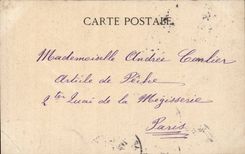 CARTE POSTALE
Mademoiselle Andrée Conlier
Article de Pêche
2ter Quai de la Mégisserie
Paris